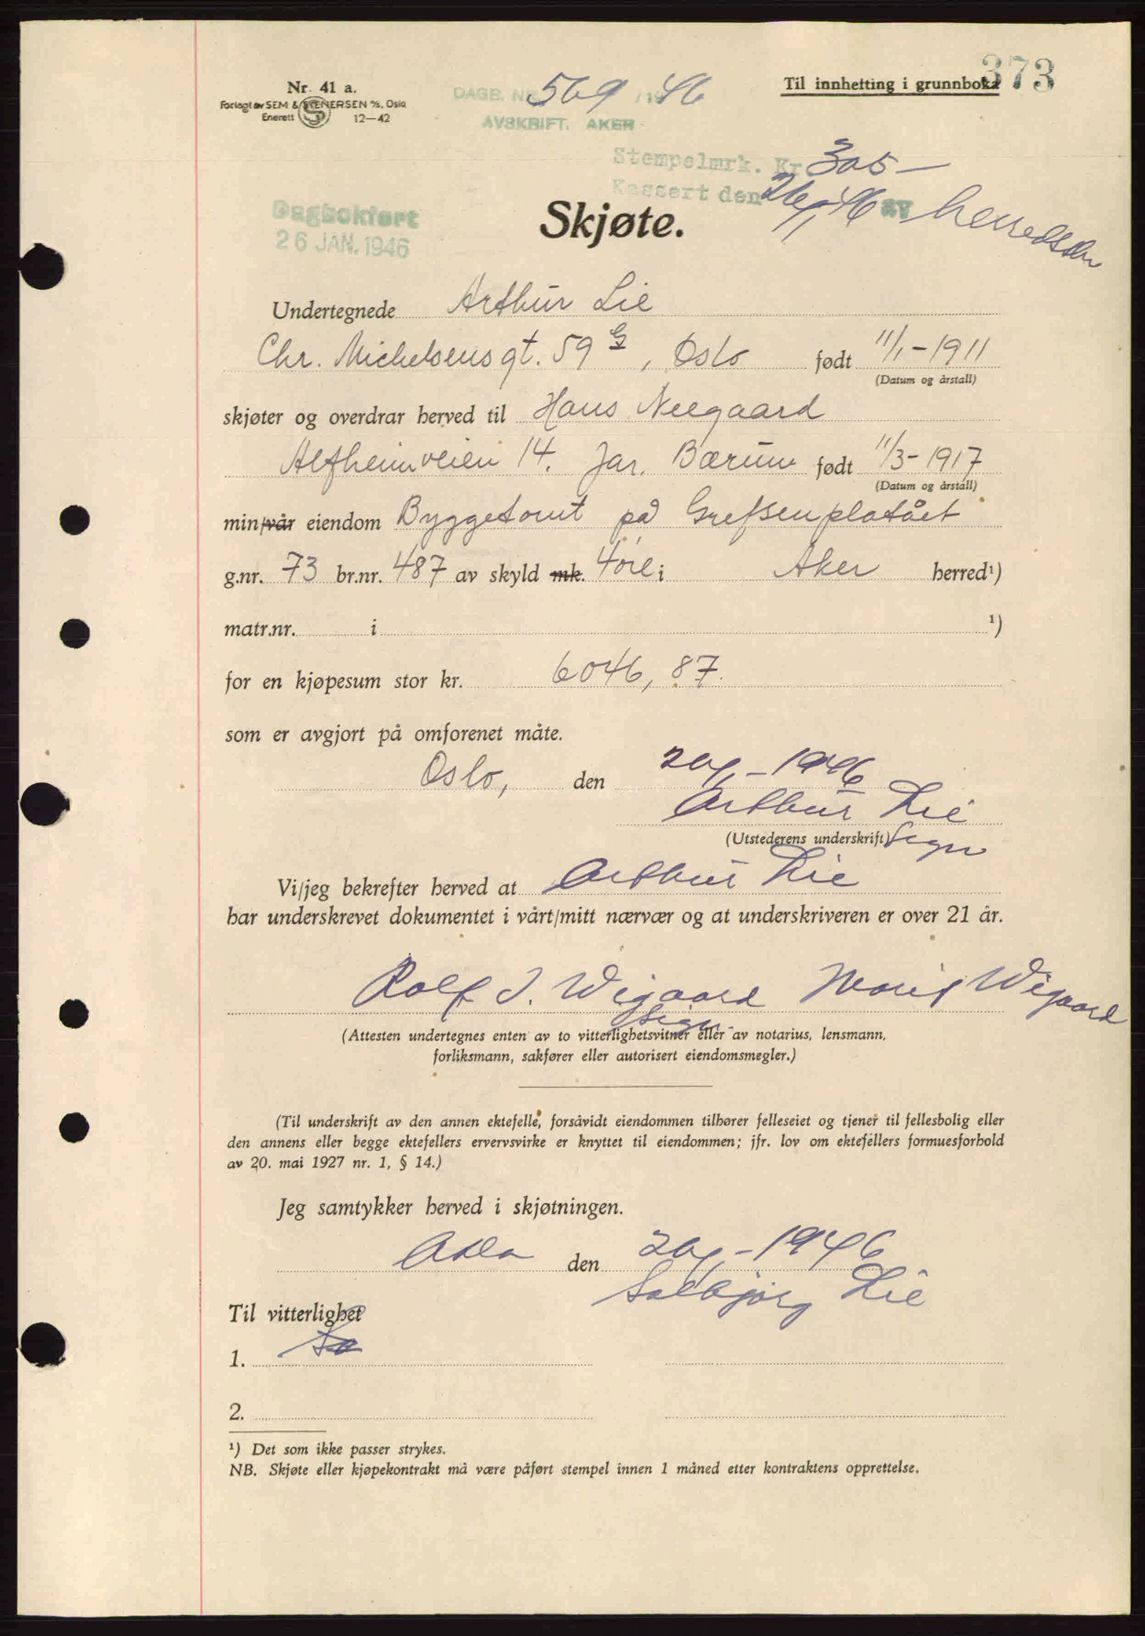 373
Nr. 41 a.
Forlagt av SEM & STENERSEN A/S, Oslo
Enerett 12—42
DAGB. NR. 569 / 1946
AVSKRIFT. AKER
Til innhetting i grunnboka
Stempelmrk. Kr 305 —
Kassert den 26/1 46 av
Dagbokført
26 JAN. 1946
Skjøte.
Undertegnede Arthur Lie
Chr. Michelsens gt. 59 G, Oslo født 11/1 - 1911
(Datum og årstall)
skjøter og overdrar herved til Hans Neegaard
Alfheimveien 14. Jar. Bærum født 11/3 - 1917
(Datum og årstall)
min/vår eiendom Byggetomt på Grefsenplatået
g.nr. 73 br.nr. 487 av skyld mk. 4 øre i Aker herred¹)
matr.nr. i ¹)
for en kjøpesum stor kr. 6046,87.
som er avgjort på omforenet måte.
Oslo, den - 1946
Arthur Lie
(Utstederens underskrift) Sign
Vi/jeg bekrefter herved at Arthur Lie
har underskrevet dokumentet i vårt/mitt nærvær og at underskriveren er over 21 år.
Rolf I. Wigaard Marit Wigaard
Sign
(Attesten undertegnes enten av to vitterlighetsvitner eller av notarius, lensmann,
forliksmann, sakfører eller autorisert eiendomsmegler.)
(Til underskrift av den annen ektefelle, forsåvidt eiendommen tilhører felleseiet og tjener til fellesbolig eller
den annens eller begge ektefellers ervervsvirke er knyttet til eiendommen; jfr. lov om ektefellers formuesforhold
av 20. mai 1927 nr. 1, § 14.)
Jeg samtykker herved i skjøtningen.
Oslo den - 1946
Solbjørg Lie
Til vitterlighet
1.
2.
¹) Det som ikke passer strykes.
NB. Skjøte eller kjøpekontrakt må være påført stempel innen 1 måned etter kontraktens opprettelse.